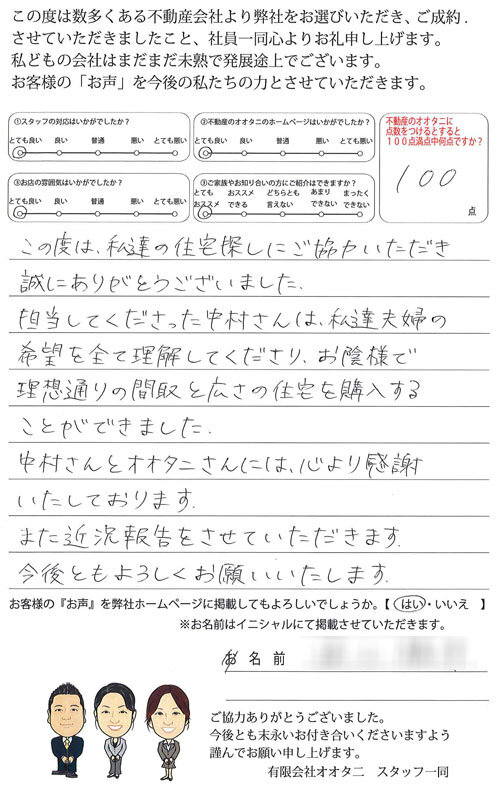 この度は数多くある不動産会社より弊社をお選びいただき、ご成約.
させていただきましたこと、社員一同心よりお礼申し上げます。
私どもの会社はまだまだ未熟で発展途上でございます。
お客様の「お声」を今後の私たちの力とさせていただきます。
①スタッフの対応はいかがでしたか？
とても良い 良い 普通 悪い とても悪い
②不動産のオオタニのホームページはいかがでしたか？
とても良い 良い 普通 悪い とても悪い
不動産のオオタニに
点数をつけるとすると
100点満点中何点ですか？
100
点
③お店の雰囲気はいかがでしたか？
とても良い 良い 普通 悪い とても悪い
③ご家族やお知り合いの方にご紹介はできますか？
とても おススメ どちらとも あまり まったく
おススメ できる 言えない できない できない
この度は、私達の住宅探しにご協力いただき
誠にありがとうございました.
担当してくださった中村さんは、私達夫婦の
希望を全て理解してくださり、お陰様で
理想通りの間取と広さの住宅を購入する
ことができました.
中村さんとオオタニさんには、心より感謝
いたしております.
また近況報告をさせていただきます.
今後ともよろしくお願いいたします.
お客様の『お声』を弊社ホームページに掲載してもよろしいでしょうか。【 はい・いいえ 】
※お名前はイニシャルにて掲載させていただきます。
お 名 前
ご協力ありがとうございました。
今後とも末永いお付き合いくださいますよう
謹んでお願い申し上げます。
有限会社オオタニ スタッフ一同